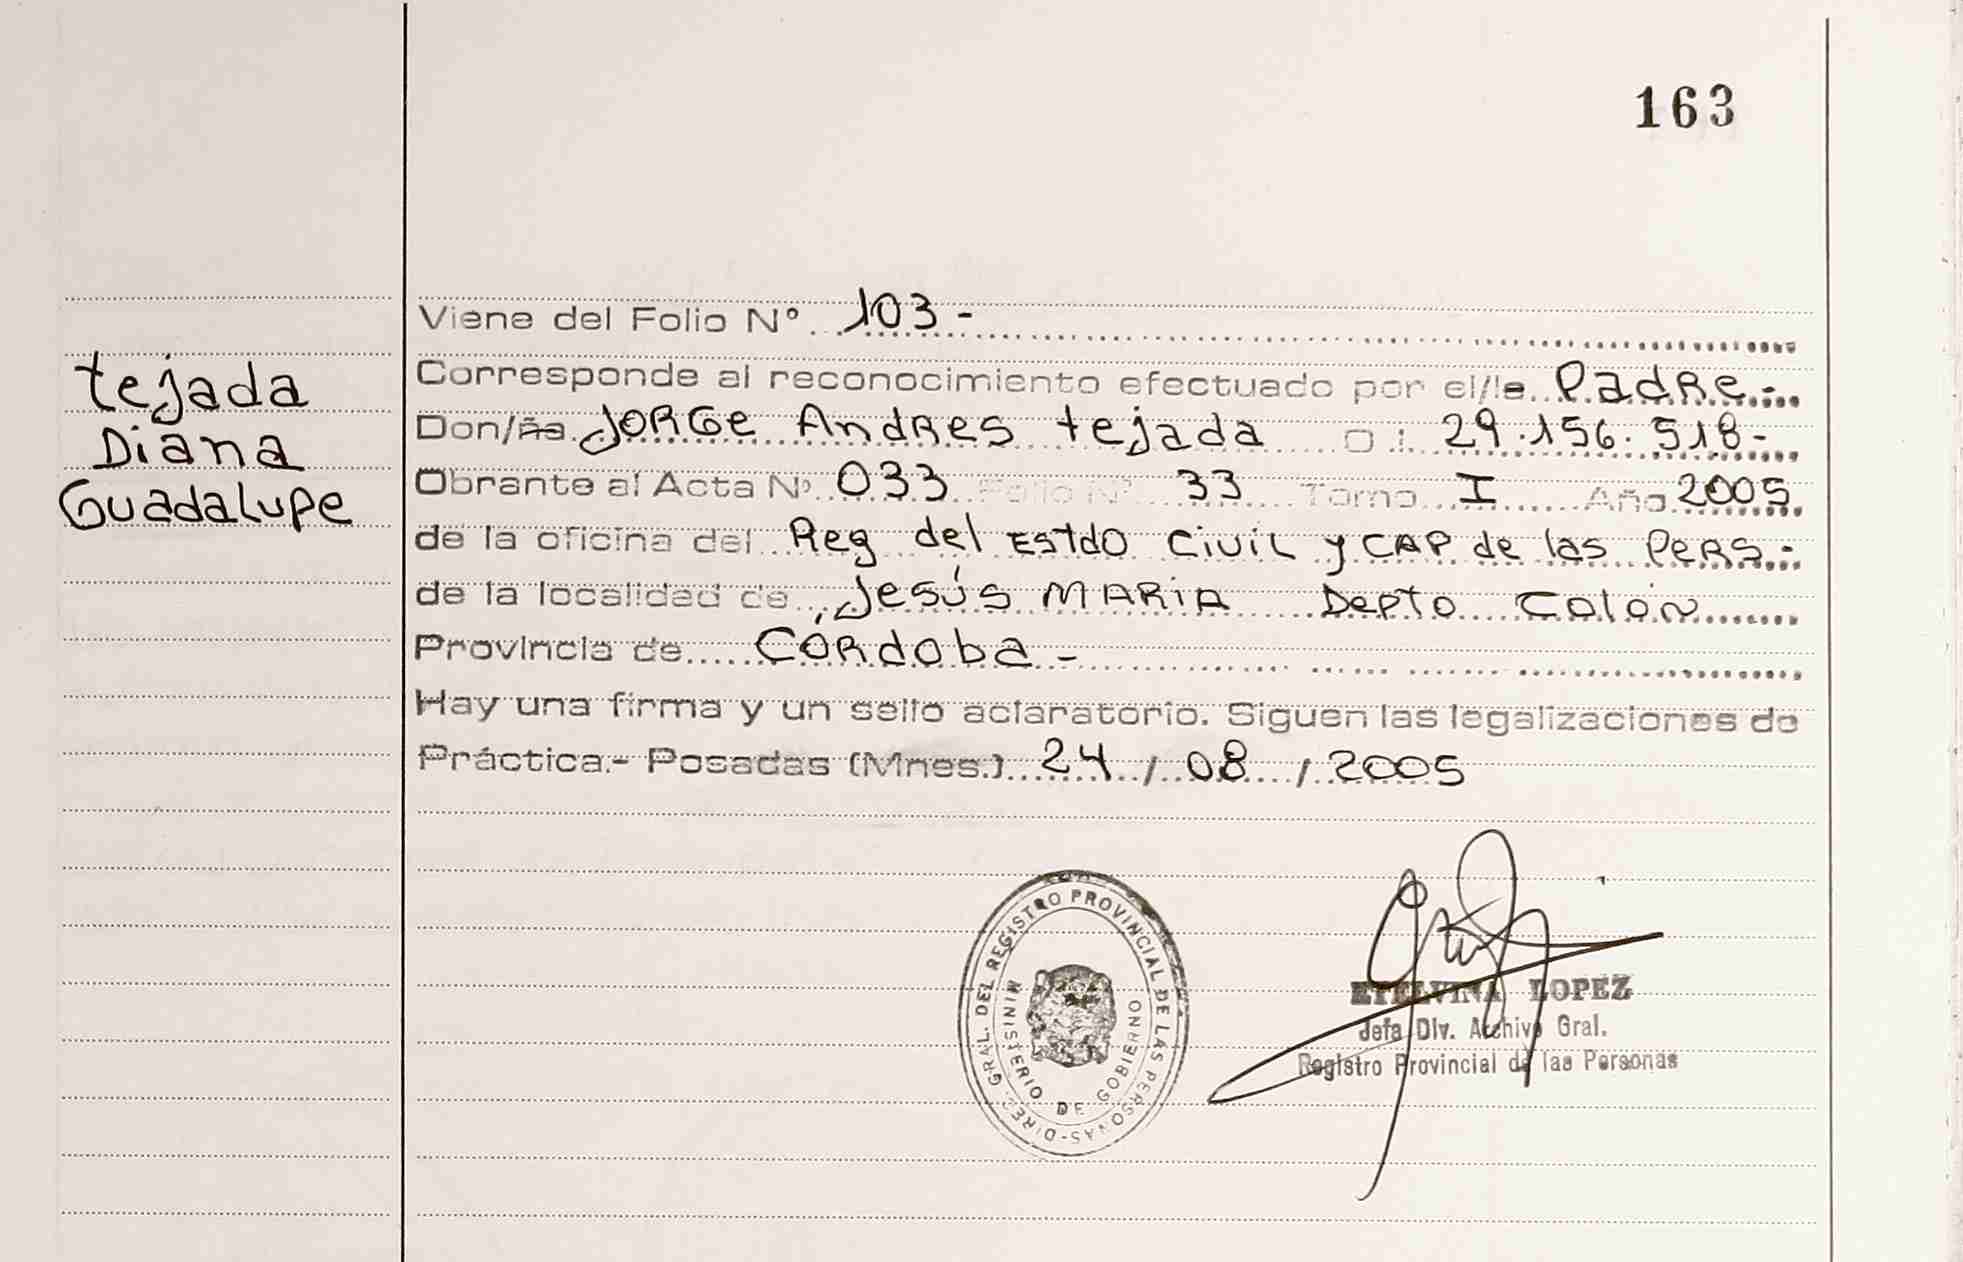 163
Viene del Folio N° 103-
tejada
Diana
Guadalupe
Corresponde al reconocimiento efectuado por el/la Padre.-
Don/ña JORGe Andres tejada D I 29.156.518-
Obrante al Acta N° 033 Folio N° 33 Tomo I Año 2005
de la oficina del Reg del Estdo Civil y CAP de las Pers.-
de la localidad de Jesús MARIA Depto Colón
Provincia de Córdoba-
Hay una firma y un sello aclaratorio. Siguen las legalizaciones de
Práctica.- Posadas (Mnes.) 24 / 08 / 2005
DIREC. GRAL. DEL REGISTRO PROVINCIAL DE LAS PERSONAS-
MINISTERIO DE GOBIERNO
LOPEZ
Jefa Div. Archivo Gral.
Registro Provincial de las Personas